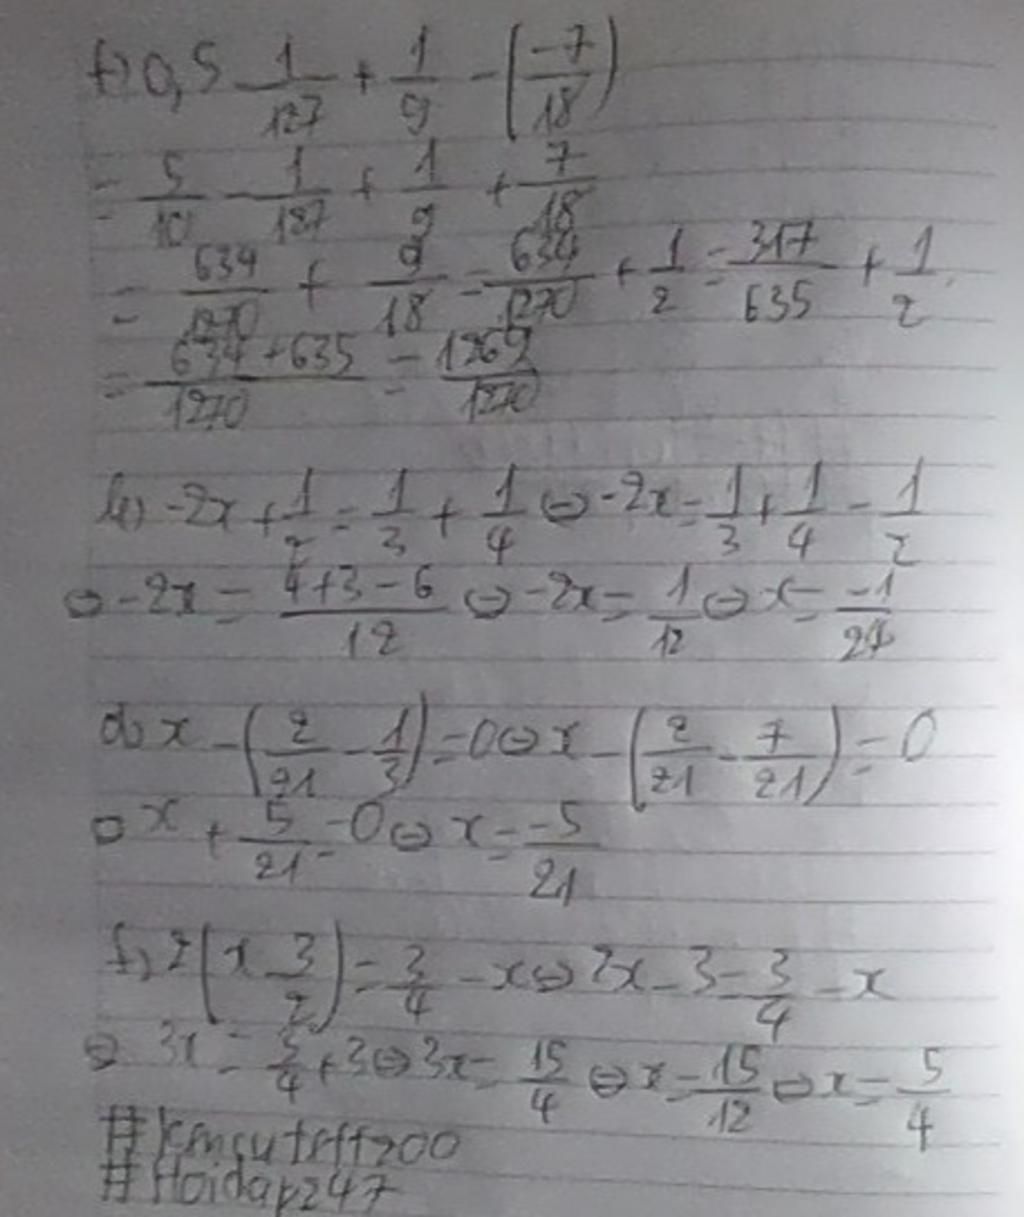 f) 0,5 - 1/127 + 1/9 - (-7/18)
= 5/10 - 1/127 + 1/9 + 7/18
= 634/1270 + 9/18 = 634/1270 + 1/2 = 317/635 + 1/2
= 634+635/1270 = 1269/1270
b) -2x + 1/2 = 1/3 + 1/4 ⇔ -2x = 1/3 + 1/4 - 1/2
⇔ -2x = 4+3-6/12 ⇔ -2x = 1/12 ⇔ x = -1/24
d) x - (2/21 - 1/3) = 0 ⇔ x - (2/21 - 7/21) = 0
⇔ x + 5/21 = 0 ⇔ x = -5/21
f) 2(x - 3/2) = 3/4 - x ⇔ 2x - 3 = 3/4 - x
⇔ 3x = 3/4 + 3 ⇔ 3x = 15/4 ⇔ x = 15/12 ⇔ x = 5/4
#Hoidap247